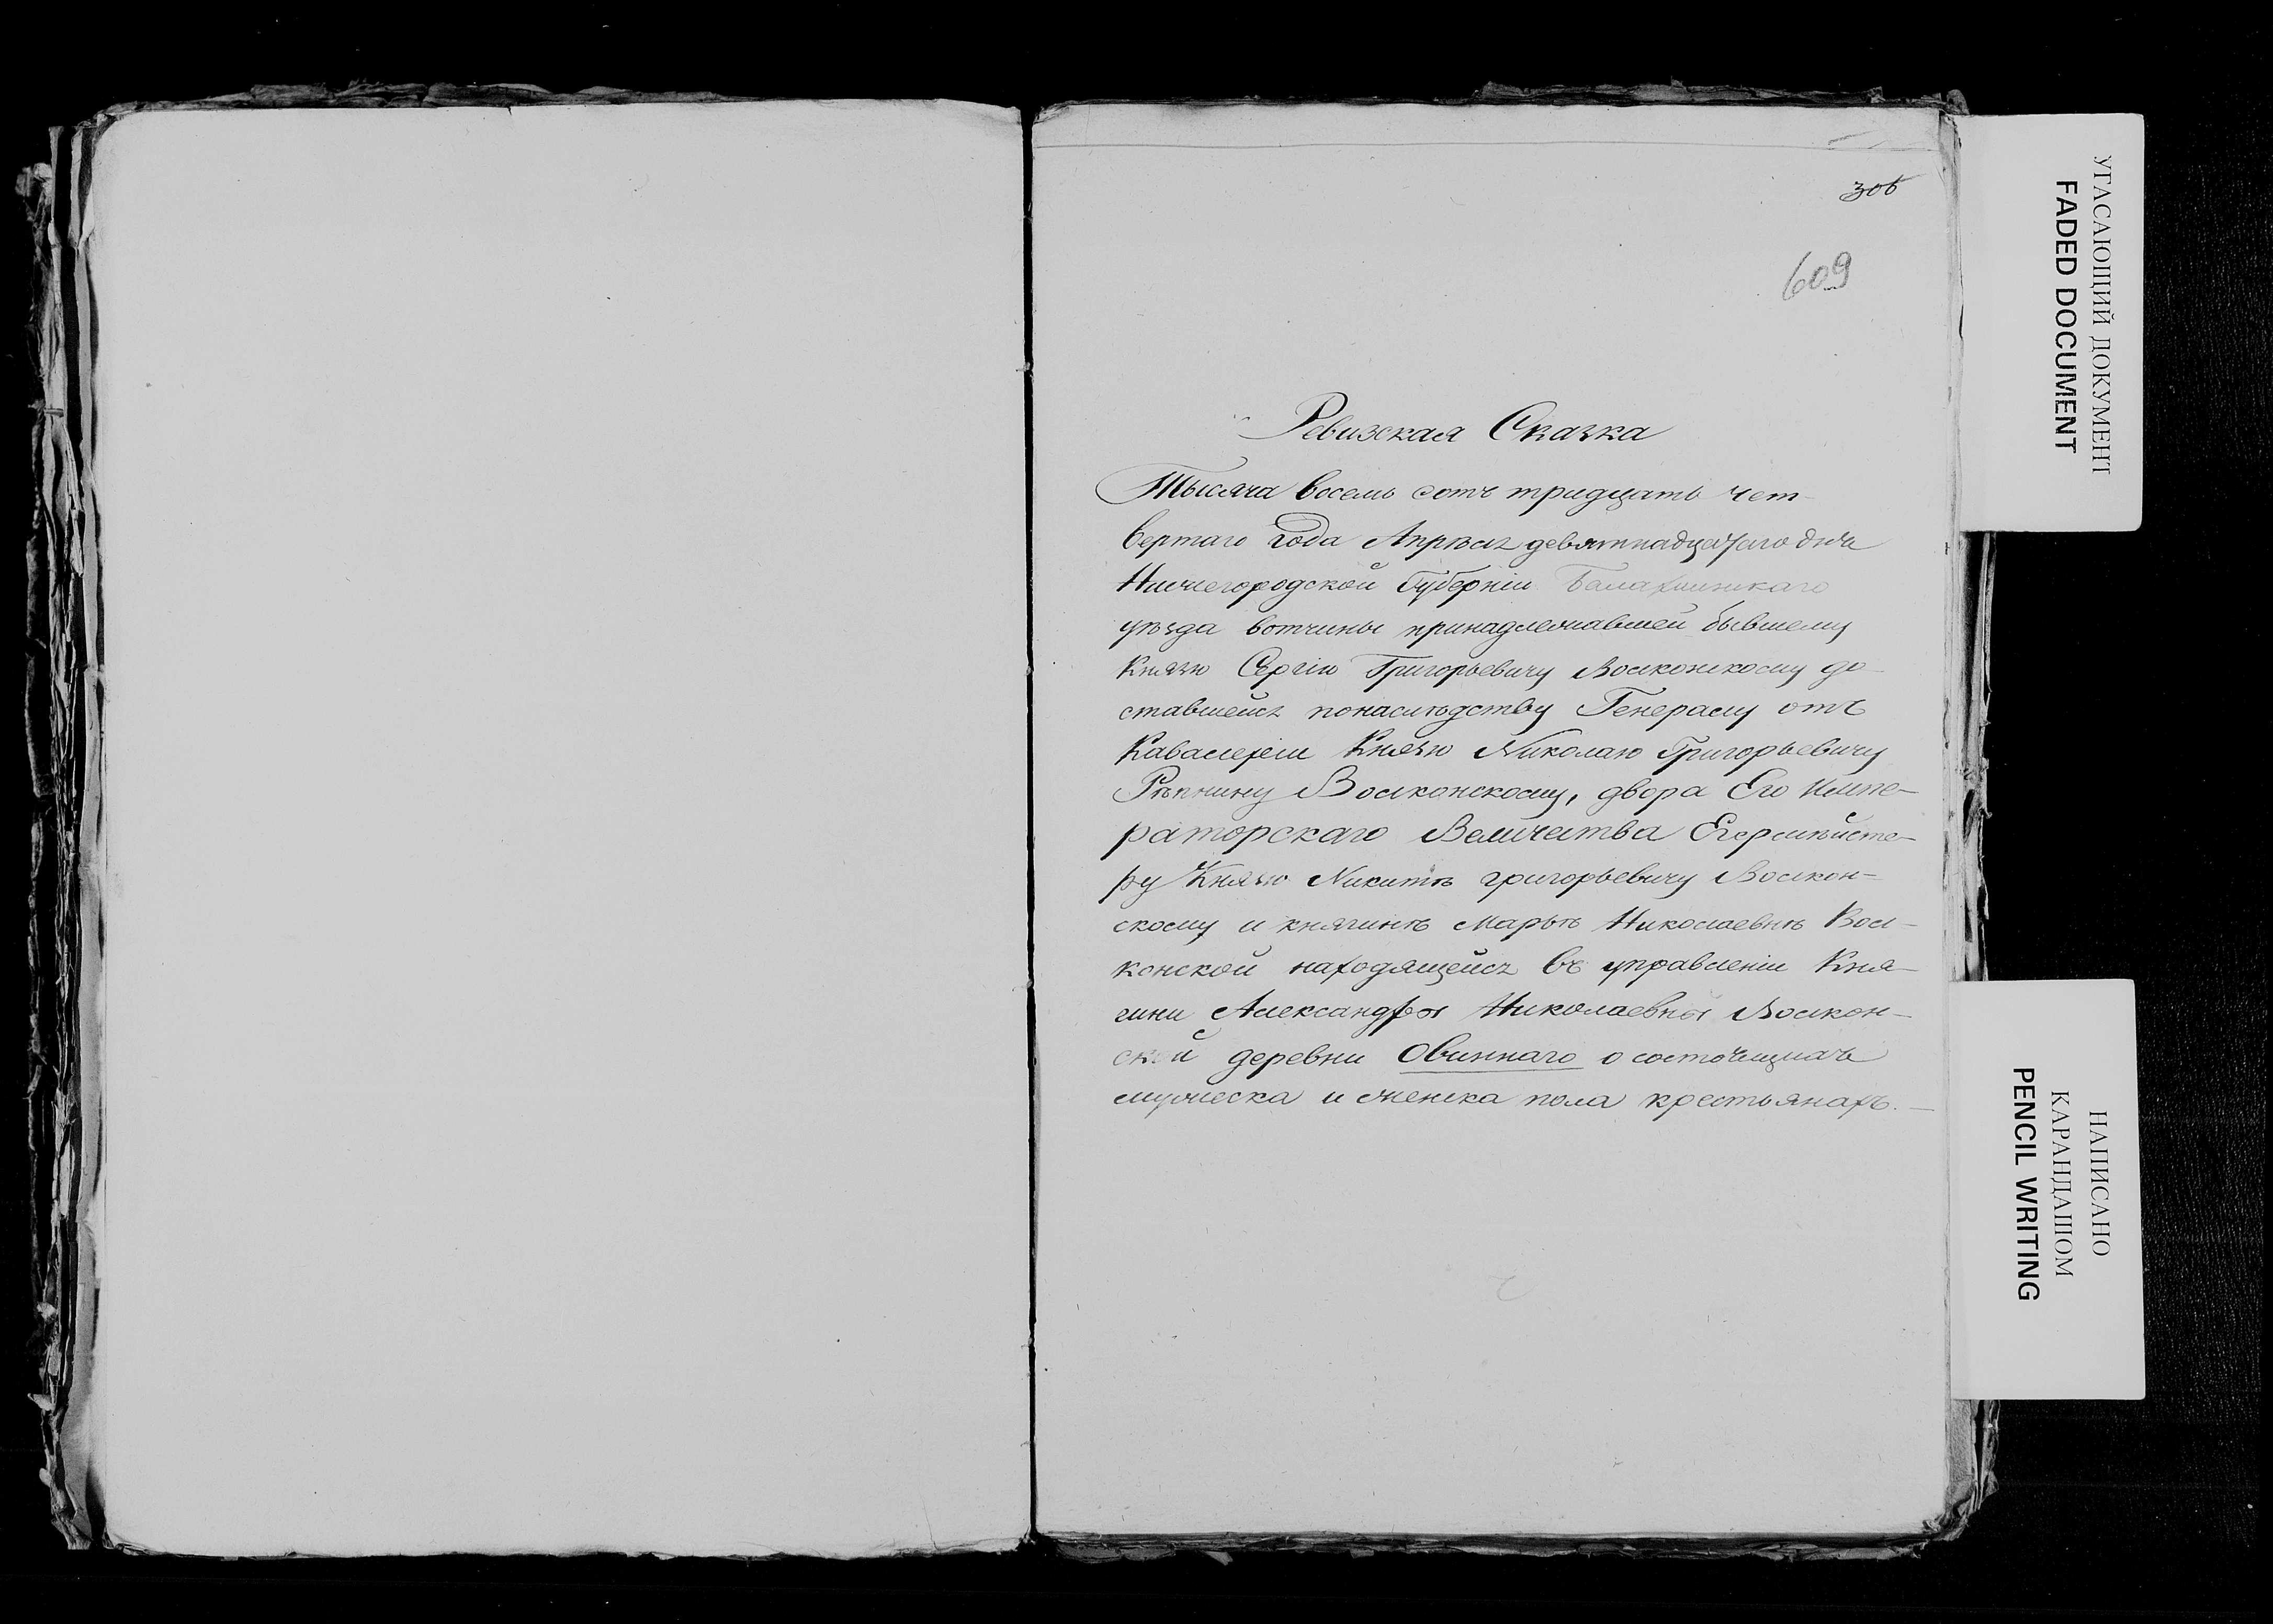 306
609
Ревизская Сказка
Тысяча восемь сотъ тридцать чет-
вертаго года Апрѣля девятнадцатаго дня
Нижегородской Губерніи Балахнинскаго
уѣзда вотчины принадлежавшей бывшему
Князю Сергію Григорьевичу Волконскому до-
ставшейся понаслѣдству Генералу отъ
Кавалеріи Князю Николаю Григорьевичу
Рѣпнину Волконскому, двора Его Импе-
раторскаго Величества Егермѣйсте-
ру Князю Никитѣ григорьевичу Волкон-
скому и княгинѣ Марьѣ Николаевнѣ Вол-
конской находящейся въ управленіи Кня-
гини Александры Николаевны Волкон-
ской деревни Овиннаго о состоящихъ
мужеска и женска пола крестьянахъ.
УГАСАЮЩИЙ ДОКУМЕНТ
FADED DOCUMENT
НАПИСАНО
КАРАНДАШОМ
PENCIL WRITING